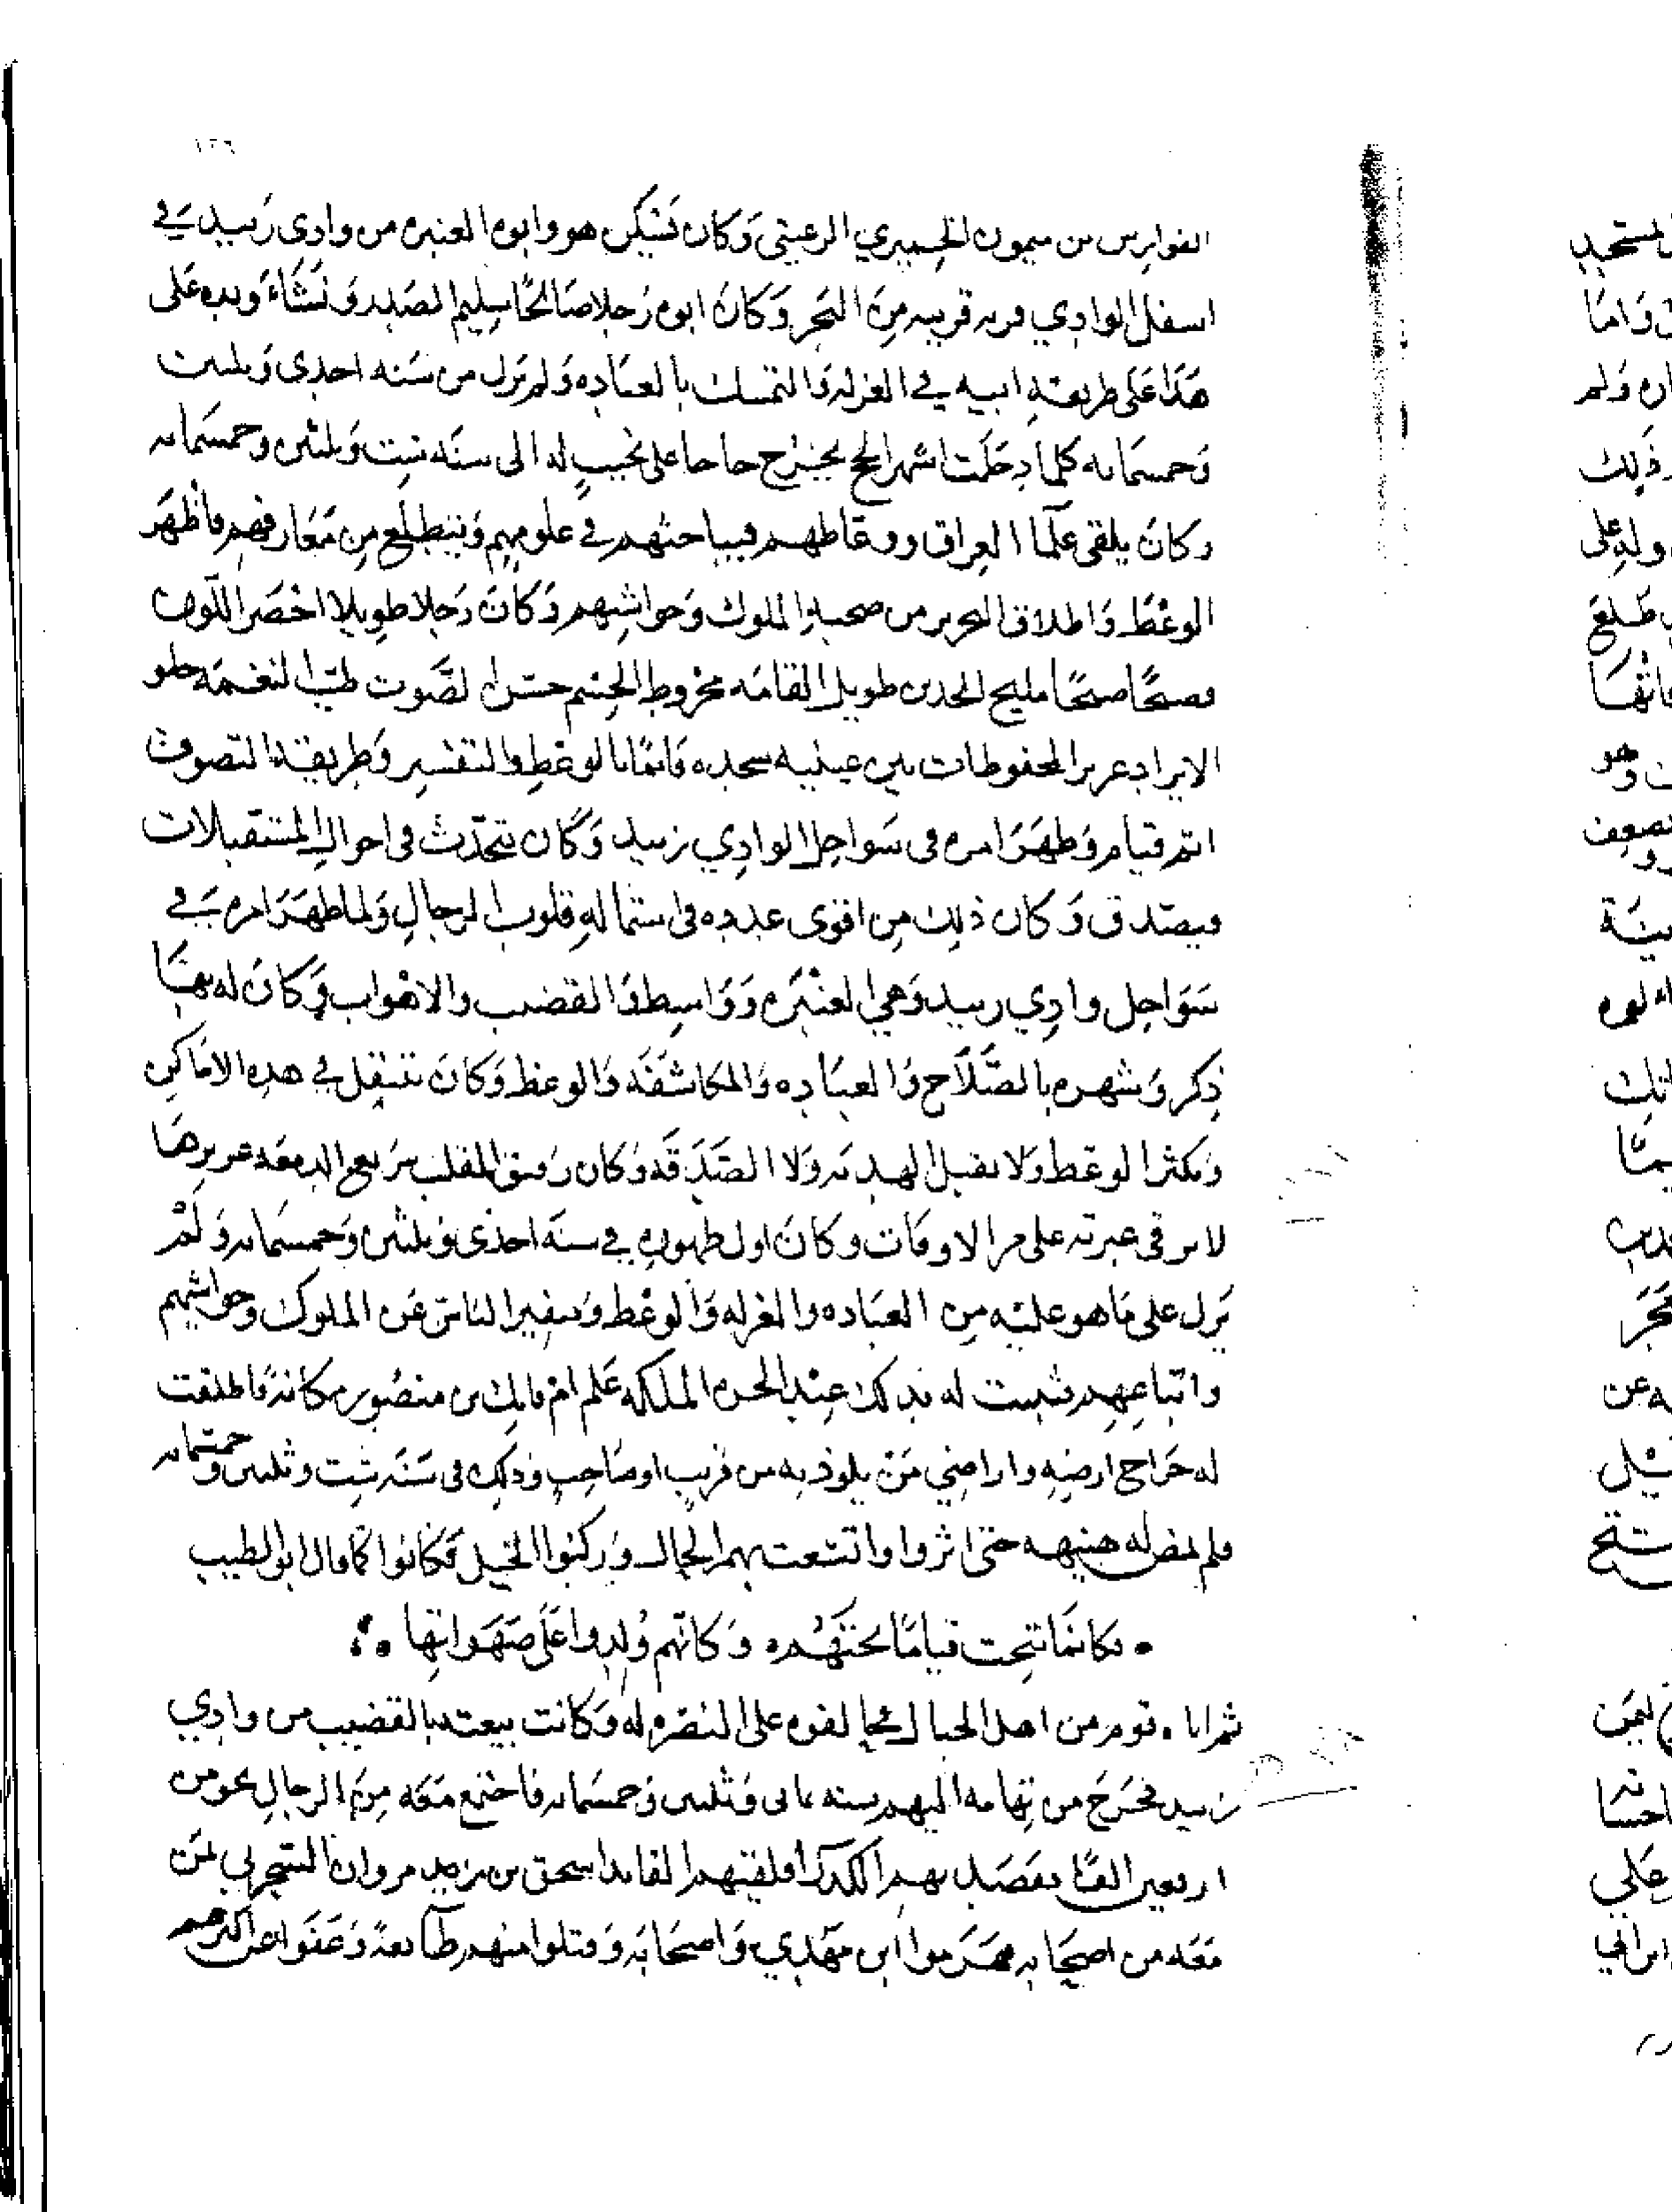 ١٢٦
الفوارس بن ميمون الحميري الرعيني وكان يسكن هو وابوه العنبره من وادي زبيد في
اسفل الوادي قريه قريبه من البحر وكان ابوه رجلا صالحا سليم الصدر ونشاء ولده على
هذا على طريقة ابيه في العزله والتمسك بالعباده ولم يزل من سنه احدى وثلثين
وخمسمايه كلما دخلت اشهر الحج يخرج حاجا على نجيب له الى سنه ست وثلثين وخمسمايه
وكان يلقى علما العراق ووعاظهم فيباحثهم في علومهم ويتطلع من معارفهم فاظهر
الوعظ واطلاق التحرير من صحبة الملوك وحواشيهم وكان رجلا طويلا اخضر اللون
فصيحا صبيحا مليح الخدين طويل القامه مخروط الجسم حسن الصوت طيب النغمه حلو
الايراد غزير المحفوظات بين عينيه سجده قائما بالوعظ والتفسير وطريقة التصوف
اتم قيام وظهر امره في سواحل الوادي زبيد وكان يتحدث في احوال المستقبلات
فيصدق وكان ذلك من اقوى عدده في استمالة قلوب الرجال ولما ظهر امره في
سواحل وادي زبيد وهي العنبره وواسط والقضيب والاهواب وكان له بها
ذكر وشهره بالصلاح والعباده والمكاشفه والوعظ وكان ينتقل في هذه الاماكن
ويكثر الوعظ ولا يقبل الهديه ولا الصدقه وكان رقيق القلب سريع الدمعه غزيرها
لا ترقى عبرته على مر الاوقات وكان اول ظهوره في سنه احدى وثلثين وخمسمايه ولم
يزل على ما هو عليه من العباده والعزله والوعظ وتنفير الناس عن الملوك وحواشيهم
واتباعهم ثبتت له بذلك عند الحره الملكه علم ام فاتك بن منصور مكانة فاطلقت
له خراج ارضه واراضي من يلوذ به من قريب او صاحب وذلك في سنه ست وثلثين وخمسمايه
فلم يمض له هنيهه حتى اثروا واتسعت بهم الحال وركبوا الخيل فكانوا كما قال ابو الطيب
فكانما نتجت قياما تحتهم وكانهم ولدوا على صهواتها
ثم اتاه قوم من اهل الجبال فحالفوه على النصره له وكانت بيعته بالقضيب من وادي
زبيد فخرج من تهامه اليهم سنه ثماني وثلثين وخمسمايه فاجتمع معه من الرجال نحو من
اربعين الفا فقصد بهم الكدرا فلقيهم القايد اسحق بن مرزوق السحرتي لمن
معه من اصحابه فهزموا ابن مهدي واصحابه وقتلوا منهم طائفة وعفوا عن اكثرهم